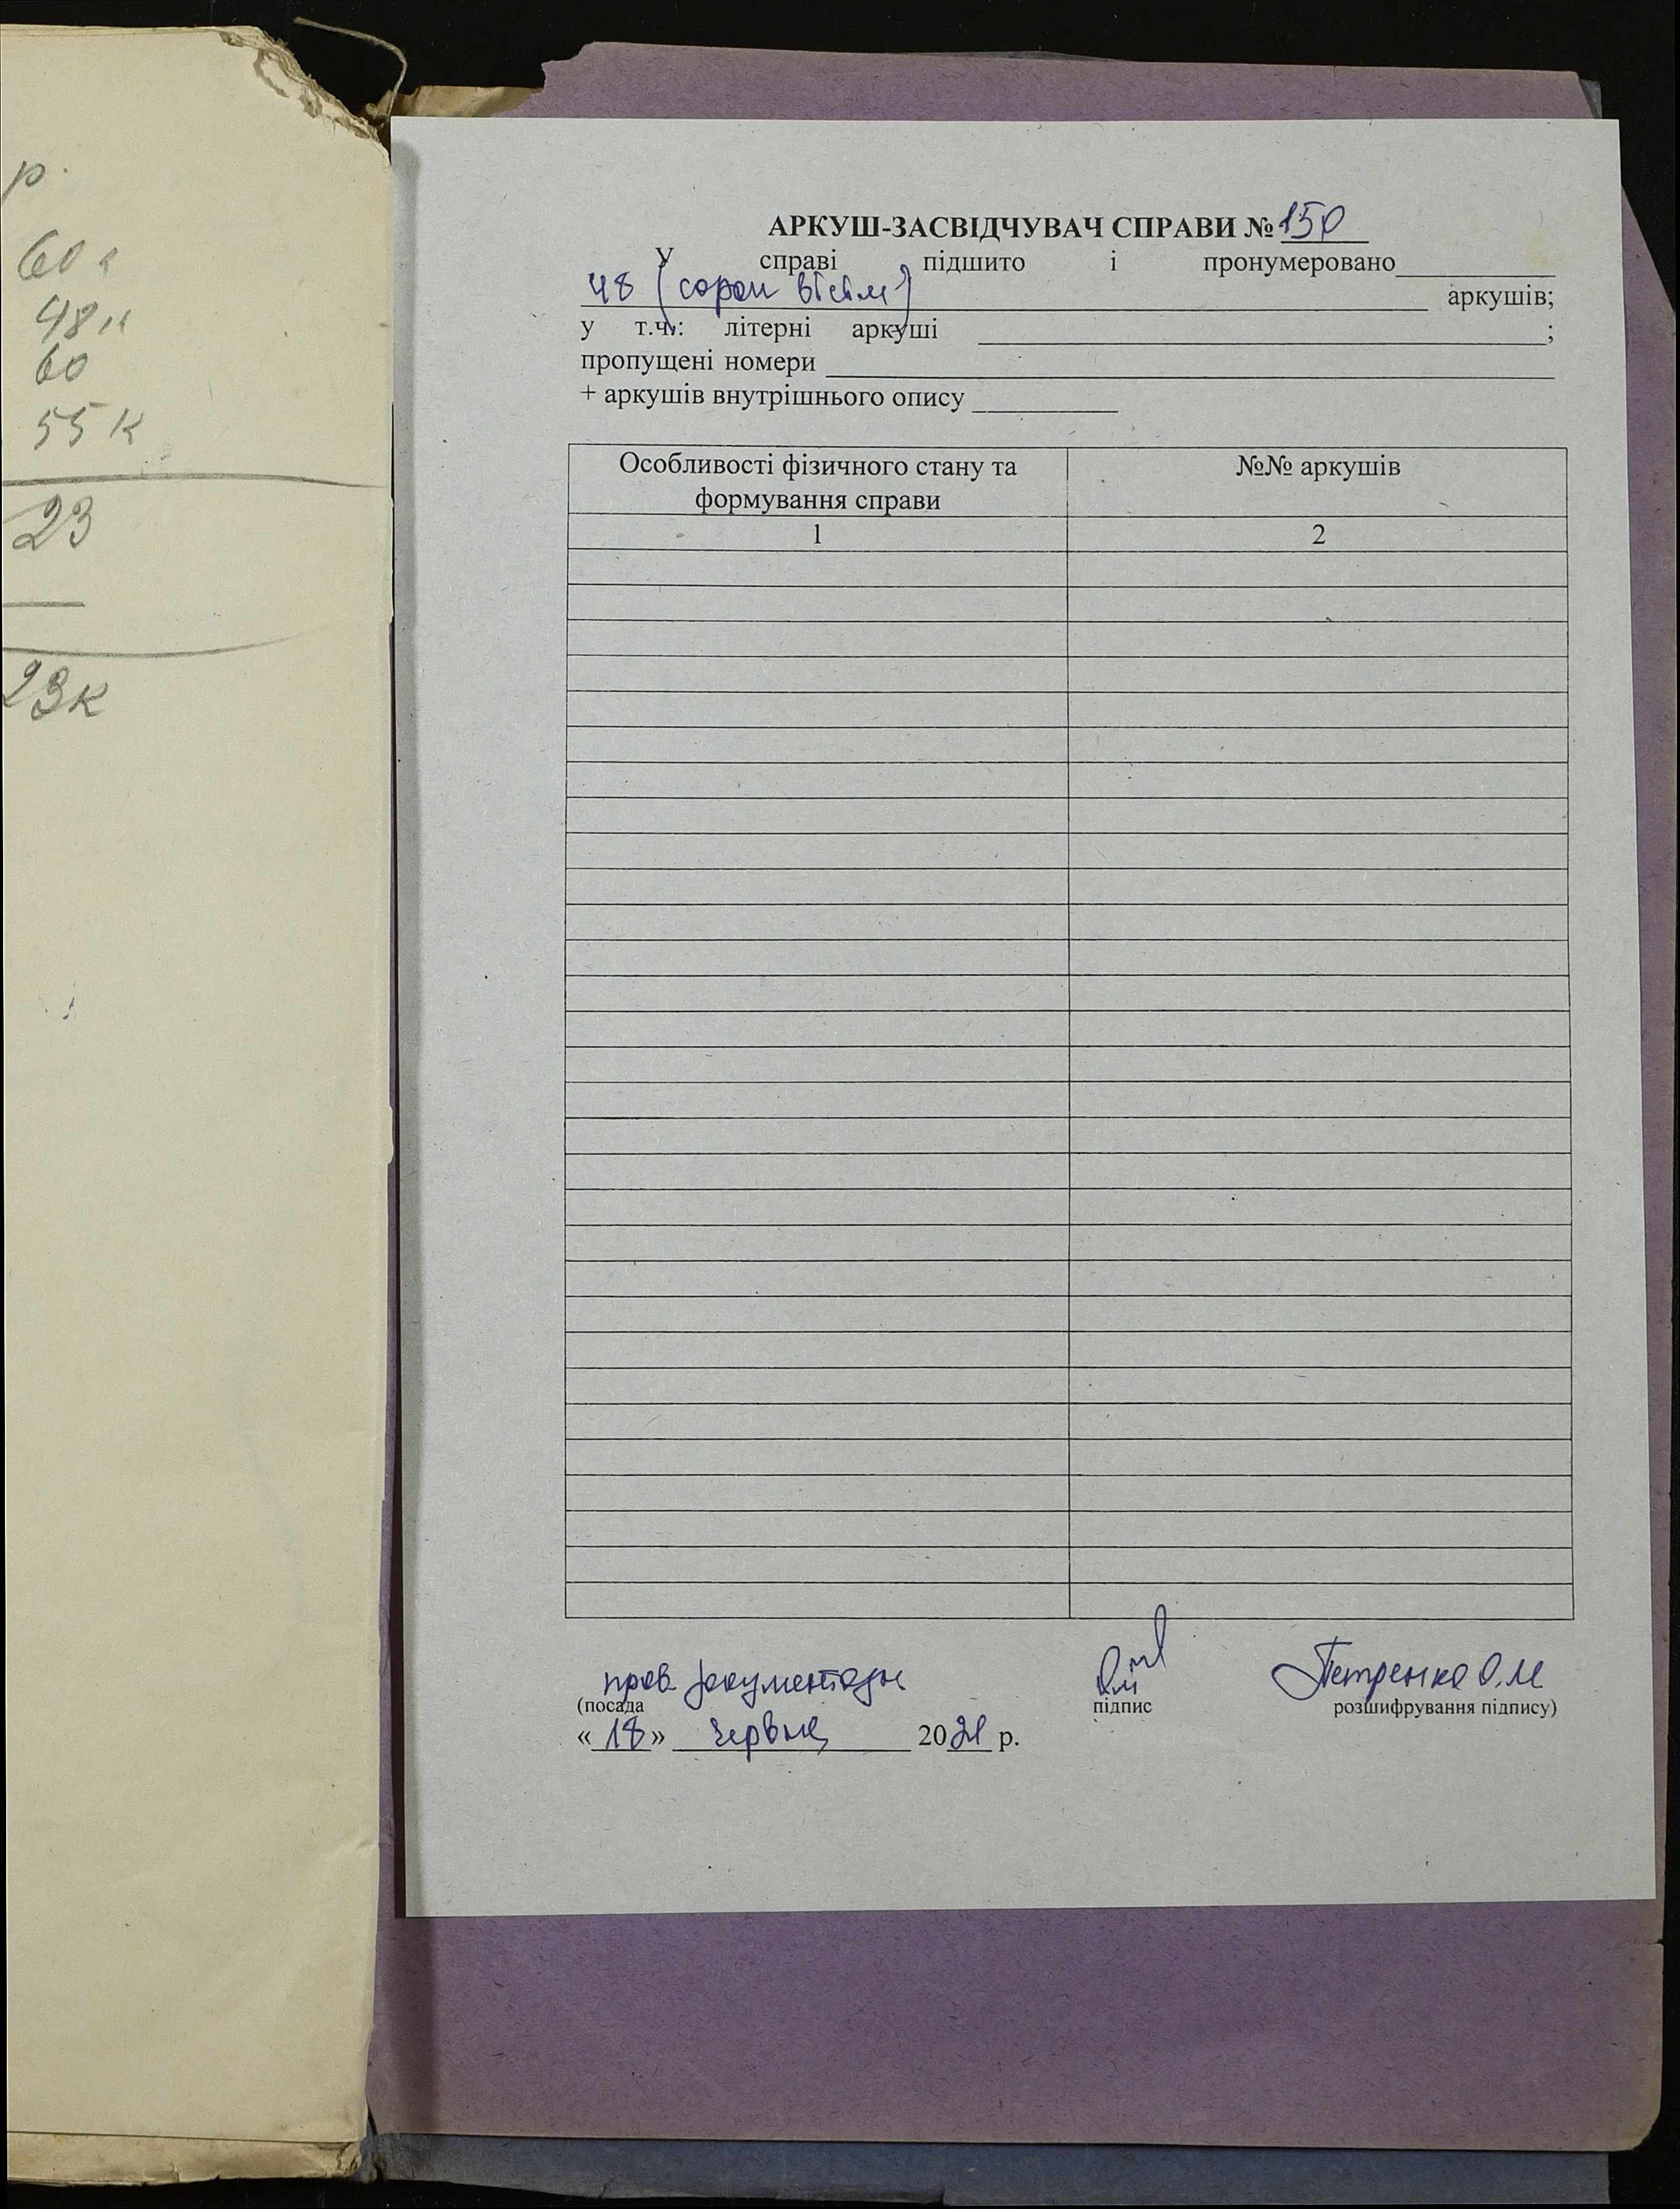 р.
60
48
60
55 к
23
23к
АРКУШ-ЗАСВІДЧУВАЧ СПРАВИ № 150
У справі підшито і пронумеровано
48 (сорок вісім) аркушів;
у т.ч.: літерні аркуші ;
пропущені номери
+ аркушів внутрішнього опису
Особливості фізичного стану та формування справи
№№ аркушів
1
2
пров документозн Петренко О.М
(посада підпис розшифрування підпису)
« 18 » червня 2021 р.